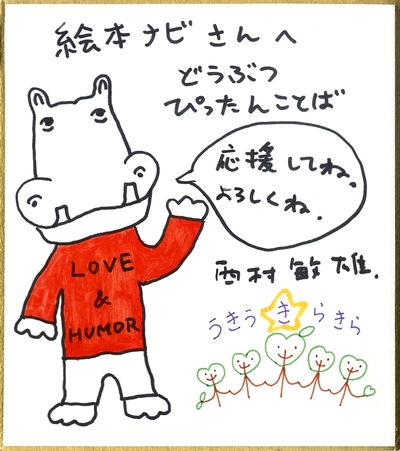 絵本ナビさんへ
どうぶつ
ぴったんことば
応援してね。
よろしくね.
LOVE
&
HUMOR
西村敏雄.
うきうききらきら